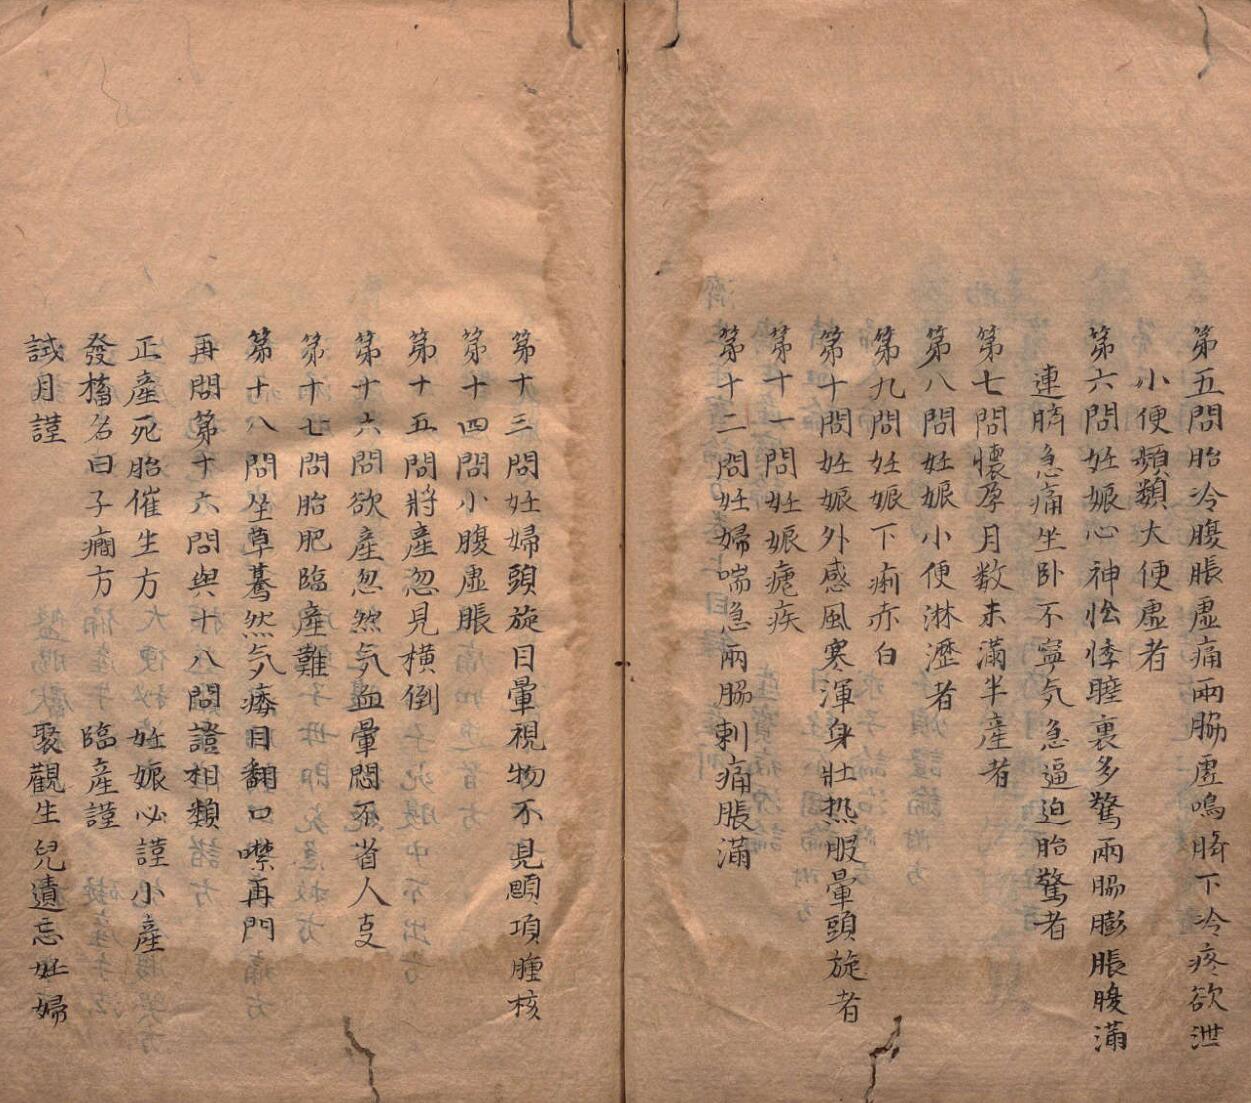 第五問胎冷腹脹虛痛兩脇虛鳴臍下冷疼欲泄
小便頻類大便虛者
第六問妊娠心神忪悸睡裏多驚兩脇膨脹腹滿
連臍急痛坐卧不寧气急逼迫胎驚者
第七問懷孕月数未滿半產者
第八問妊娠小便淋瀝者
第九問妊娠下痢赤白
第十問妊娠外感風寒渾身壯热眼暈頭旋者
第十一問妊娠瘧疾
第十二問妊婦喘急兩脇刺痛脹滿
第十三問妊婦頭旋目暈視物不見頤項腫核
第十四問小腹虛脹
第十五問將產忽見橫倒
第十六問欲產忽然气血暈悶不省人
第十七問胎肥臨產難
第十八問坐草驀然气痿目翻口噤再門
再問第十六問與十八問證相類諸方
正產死胎催生方 妊娠必謹小產
發搐名曰子癎方 臨產謹
試月謹 聚觀生兒遺忘妊婦